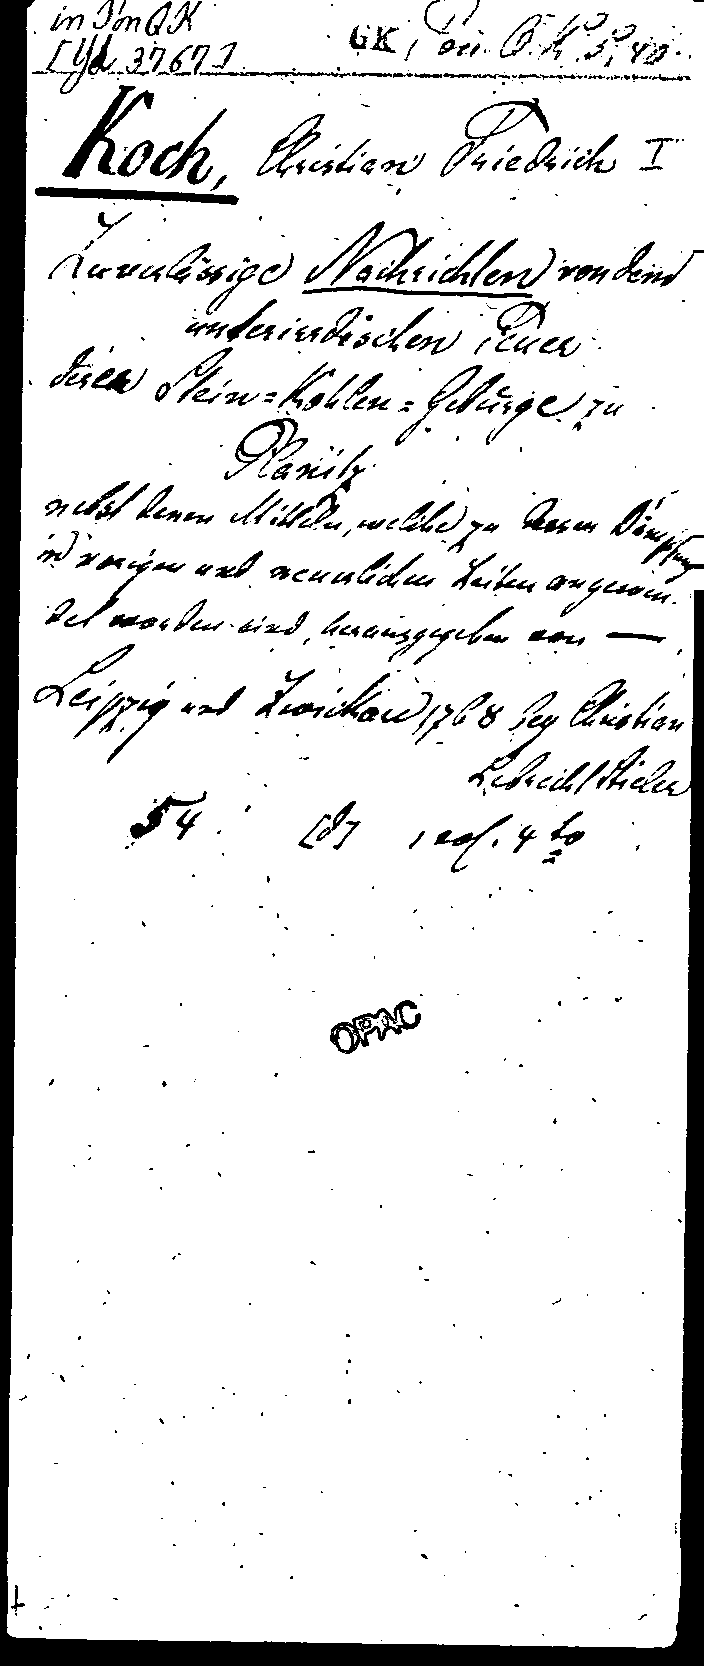 in Pon QK
[Yd 3767]
GK, Pon QK
Koch, Christian Friedrich I
Zuverlässige Nachrichten von dem
unterirdischen Feuer
derer Stein=Kohlen=Gebürge zu
Planitz
nebst denen Mitteln, welche zu deren Dämpfung
in vorigen und neuerlichen Zeiten angewen-
det worden sind, herausgegeben von —,
Leipzig und Zwickau, 1768 bey Christian
Lebrecht Stieler
54 [8] 4to
OPAC